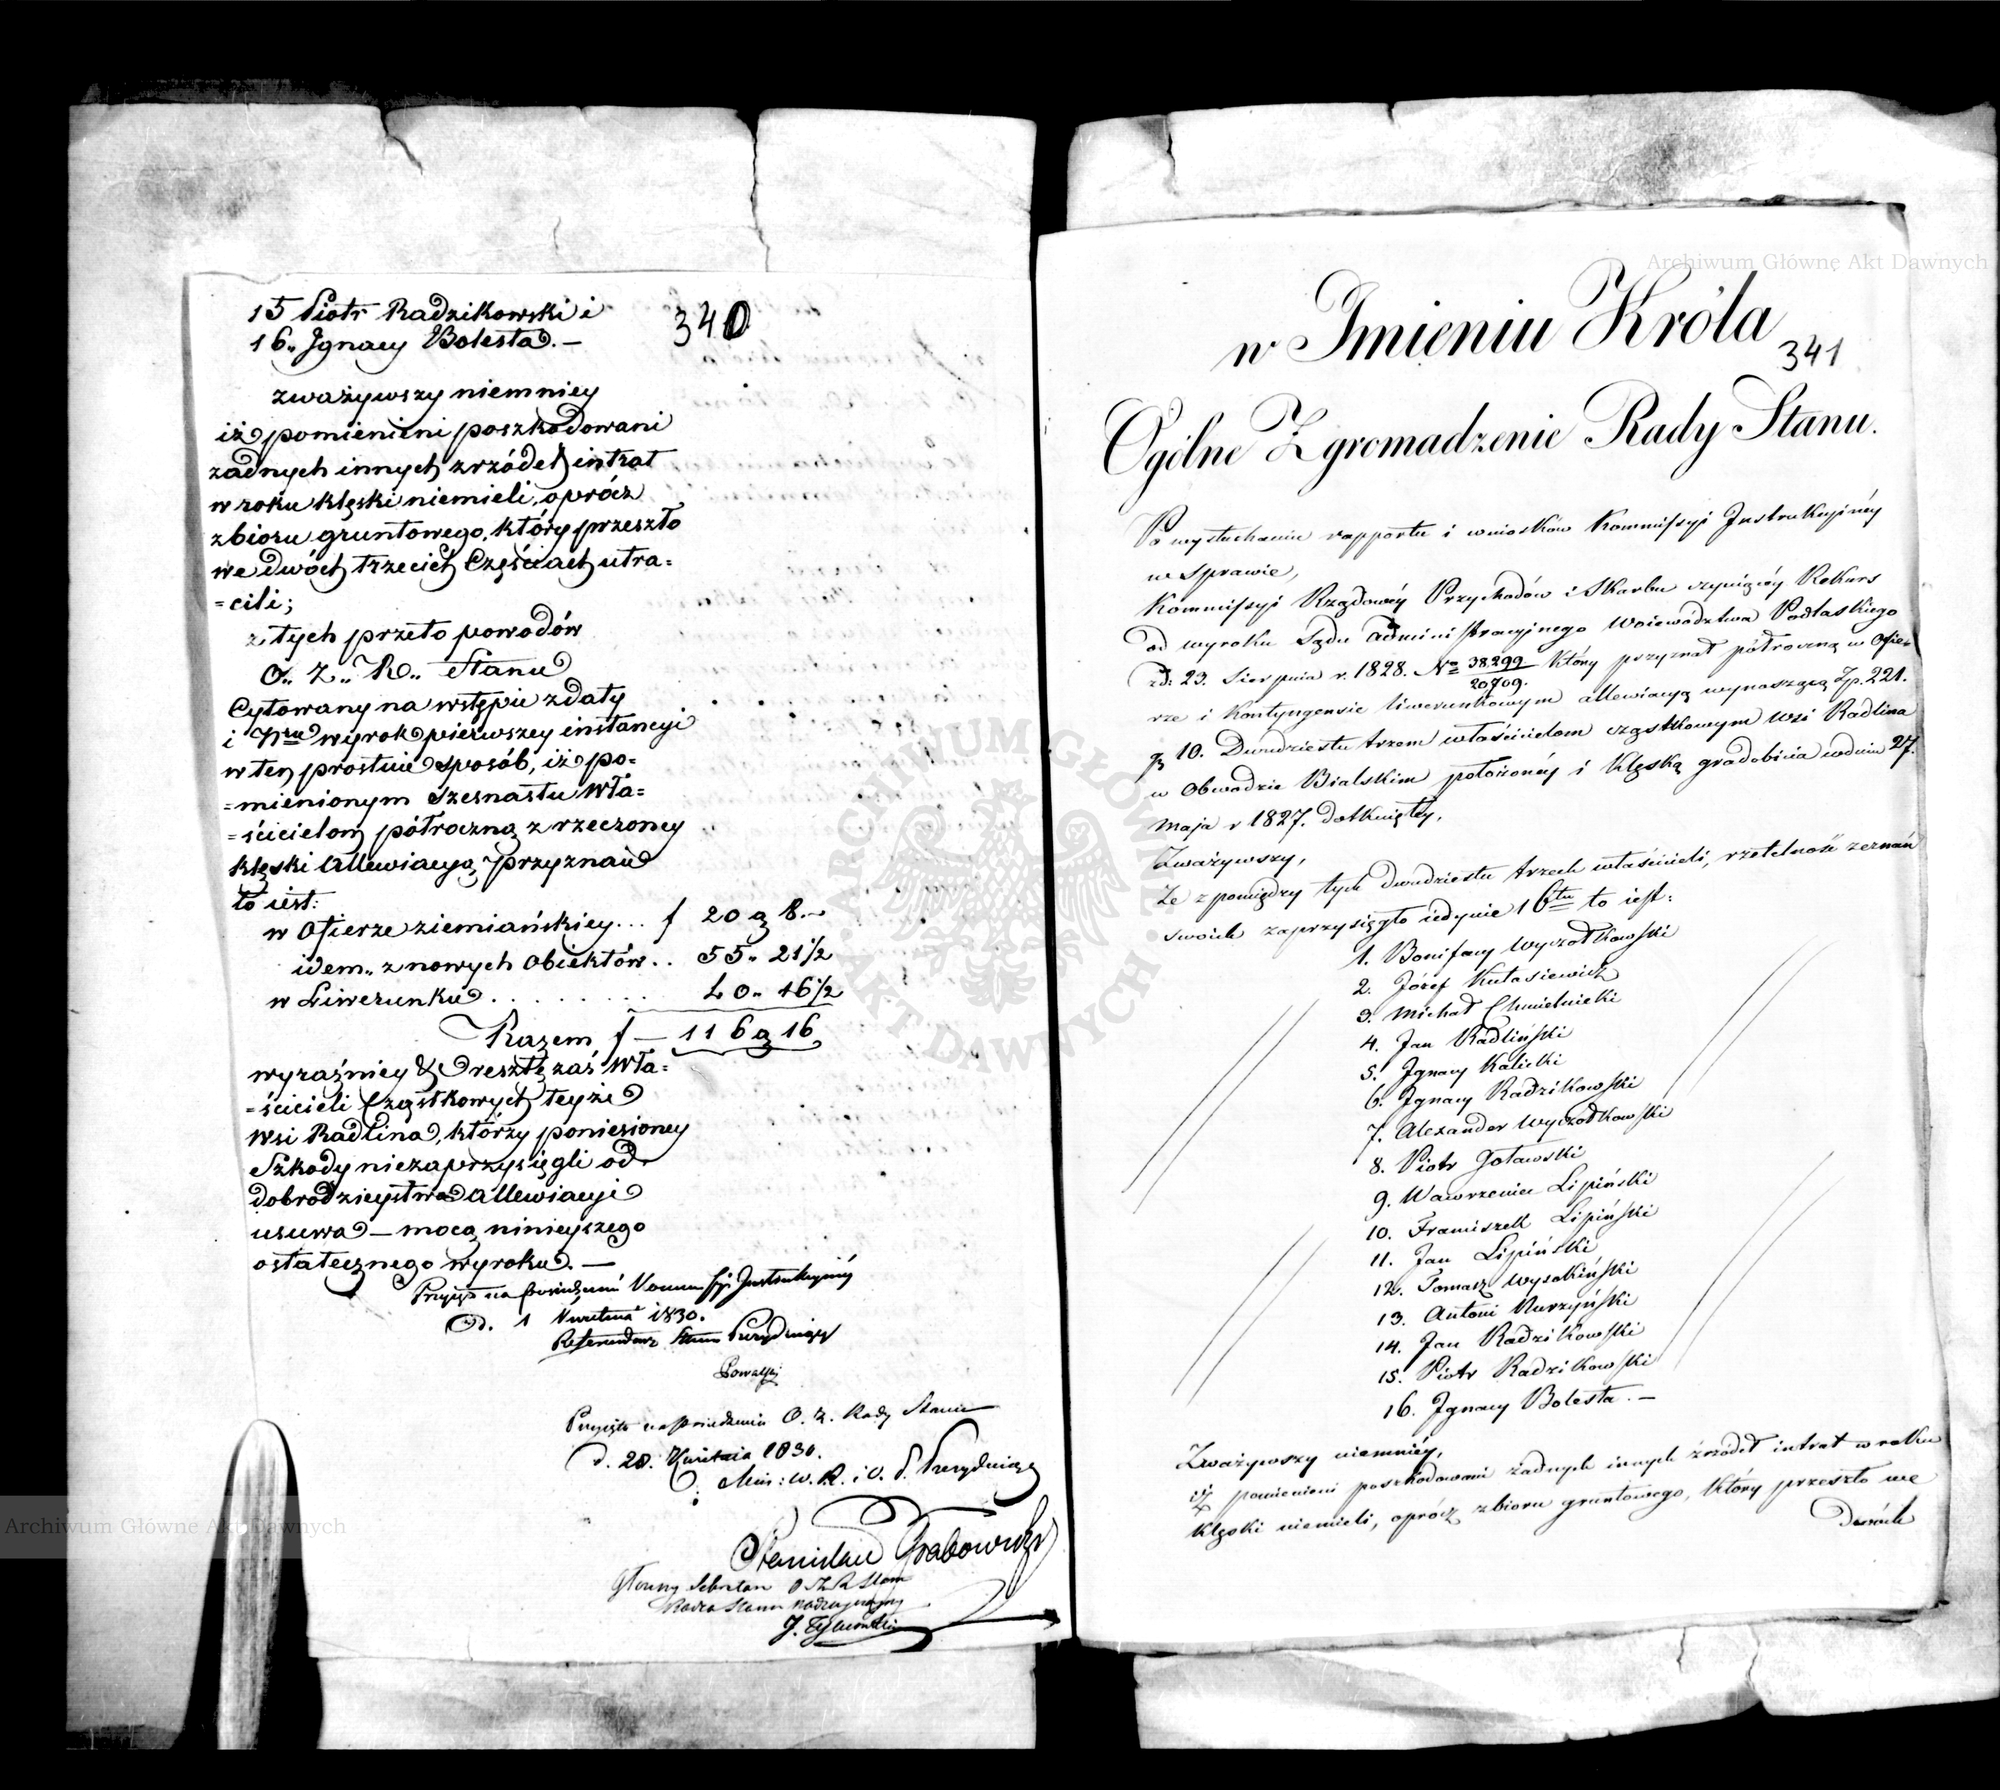 15 Piotr Radzikowski i
16„ Jgnacy Bolesta. —
340
zważywszy niemniey
iż pomienieni poszkodowani
żadnych innych zrzódeł intrat
w roku klęski niemieli, oprócz
zbioru gruntowego, który przeszło
we dwóch trzecich Częściach utra=
=cili;
z tych przeto powodów
O„ Z„ R„ Stanu
Cytowany na wstępie z daty
i Nru wyrok pierwszey instancyi
w ten prostuie sposób, iż po=
=mienionym szesnastu Wła=
=ścicielom półroczną z rzeczoney
klęski allewiacyą przyznaie
to iest:
w Ofierze ziemiańskiey... f 20 g 8.~
idem„ z nowych Obiektów.. 55„ 21 1/2
w Liwerunku . . . . . . . . 40„ 16 1/2
Razem f — 116 g 16
wyraźniey & resztę zaś Wła=
=ścicieli Cząstkowych teyże
Wsi Radlina, którzy poniesioney
Szkody niezaprzysięgli od
dobrodzieystwa allewiacyi
usuwa — mocą ninieyszego
ostatecznego wyroku. —
Przyięto na posiedzeniu Kommissyi Instrukcyinéy
D. 1 Kwietnia 1830.
Referendarz Stanu Prezyduiący
Przyięto na posiedzeniu O. Z. Rady Stanu
d. 28. Kwietnia 1830.
Min: W. R. i O. P. Prezyduiący
Stanisław Grabowski
Główny Sekretarz O Z R Stanu
Radca Stanu Nadzwyczayny
J. Tymowski
w Jmieniu Króla
341
Ogólne Zgromadzenie Rady Stanu.
Po wysłuchaniu rapportu i wniosków Kommissyi Jnstrukcyinéy
w sprawie,
Kommissyi Rządowéy Przychodów i Skarbu czyniącéy Rekurs
od wyroku Sądu Administracyinego Woiewództwa Podlaskiego
z d: 23. Sierpnia r. 1828. No 38299/20709. który przyznał półroczną w Ofie-
rze i Kontyngensie liwerunkowym allewiacyą wynoszącą Zp. 221.
gr 10. Dwudziestu trzem właścicielom cząstkowym wsi Radlina
w Obwodzie Bialskim położonéy i klęską gradobicia w dniu 27.
Maja r 1827. dotkniętéy,
Zważywszy,
Że z pomiędzy tych dwudziestu trzech właścicieli, rzetelność zeznań
swoich zaprzysięgło iedynie 16tu to iest:
1. Bonifacy Wyczołkowski
2. Józef Kulasiewicz
3. Michał Chmielnicki
4. Jan Radliński
5. Jgnacy Kalicki
6. Jgnacy Radzikowski
7. Alexander Wyczołkowski
8. Piotr Goławski
9. Wawrzeniec Lipiński
10. Franciszek Lipiński
11. Jan Lipiński
12. Tomasz Wysokiński
13. Antoni Kurzyński
14. Jan Radzikowski
15. Piotr Radzikowski
16. Jgnacy Bolesta. —
Zważywszy niemniéy,
iż pomienieni poszkodowani żadnych innych źrzódeł intrat w roku
klęski niemieli, oprócz zbioru gruntowego, który przeszło we
dwóch
Archiwum Główne Akt Dawnych
Archiwum Główne Akt Dawnych
ARCHIWUM GŁÓWNE AKT DAWNYCH